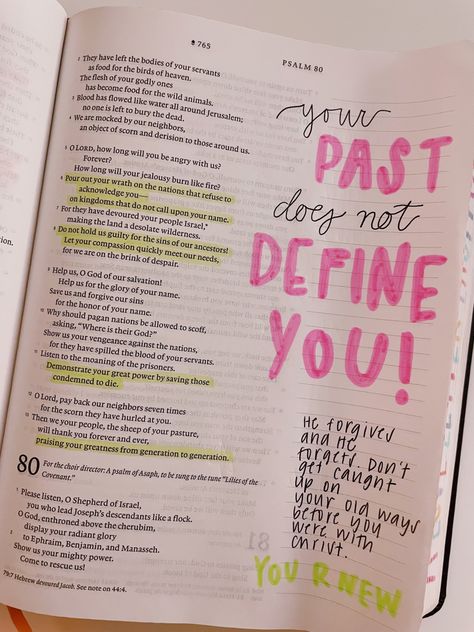 765
PSALM 80
2 They have left the bodies of your servants
as food for the birds of heaven.
The flesh of your godly ones
has become food for the wild animals.
3 Blood has flowed like water all around Jerusalem;
no one is left to bury the dead.
4 We are mocked by our neighbors,
an object of scorn and derision to those around us.
5 O LORD, how long will you be angry with us?
Forever?
How long will your jealousy burn like fire?
6 Pour out your wrath on the nations that refuse to
acknowledge you—
on kingdoms that do not call upon your name.
7 For they have devoured your people Israel,*
making the land a desolate wilderness.
8 Do not hold us guilty for the sins of our ancestors!
Let your compassion quickly meet our needs,
for we are on the brink of despair.
9 Help us, O God of our salvation!
Help us for the glory of your name.
Save us and forgive our sins
for the honor of your name.
10 Why should pagan nations be allowed to scoff,
asking, “Where is their God?”
Show us your vengeance against the nations,
for they have spilled the blood of your servants.
11 Listen to the moaning of the prisoners.
Demonstrate your great power by saving those
condemned to die.
12 O Lord, pay back our neighbors seven times
for the scorn they have hurled at you.
13 Then we your people, the sheep of your pasture,
will thank you forever and ever,
praising your greatness from generation to generation.
80 For the choir director: A psalm of Asaph, to be sung to the tune “Lilies of the
Covenant.”
1 Please listen, O Shepherd of Israel,
you who lead Joseph’s descendants like a flock.
O God, enthroned above the cherubim,
display your radiant glory
2 to Ephraim, Benjamin, and Manasseh.
Show us your mighty power.
Come to rescue us!
79:7 Hebrew devoured Jacob. See note on 44:4.
your
PAST
does not
DEFINE
YOU!
He forgives
and He
forgets. Don't
get caught
up on
your old ways
before you
were with
Christ.
YOU R NEW